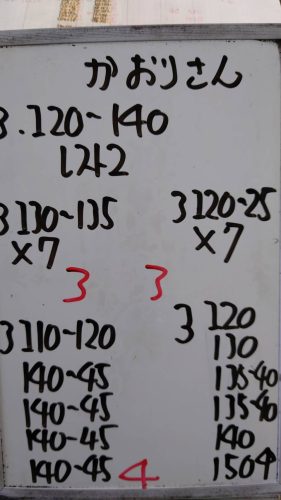 かおりさん
3.120~140
1212
3 130~135
×7
3 120~25
×7
3
3
3 110~120
140~45
140~45
140~45
140~45 4
3 120
130
135~40
135~40
140
150↑